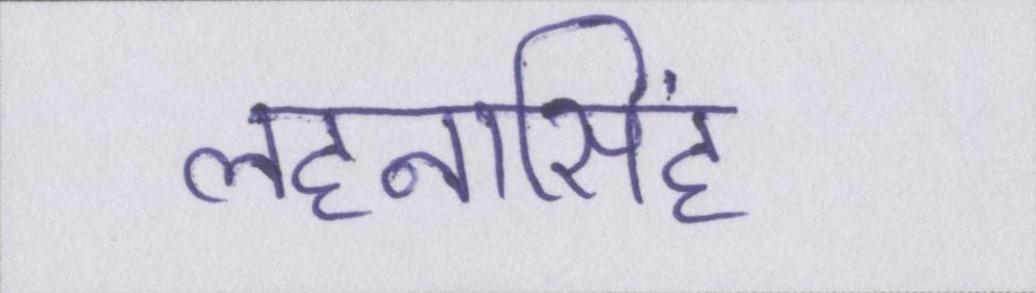 लहनासिंह